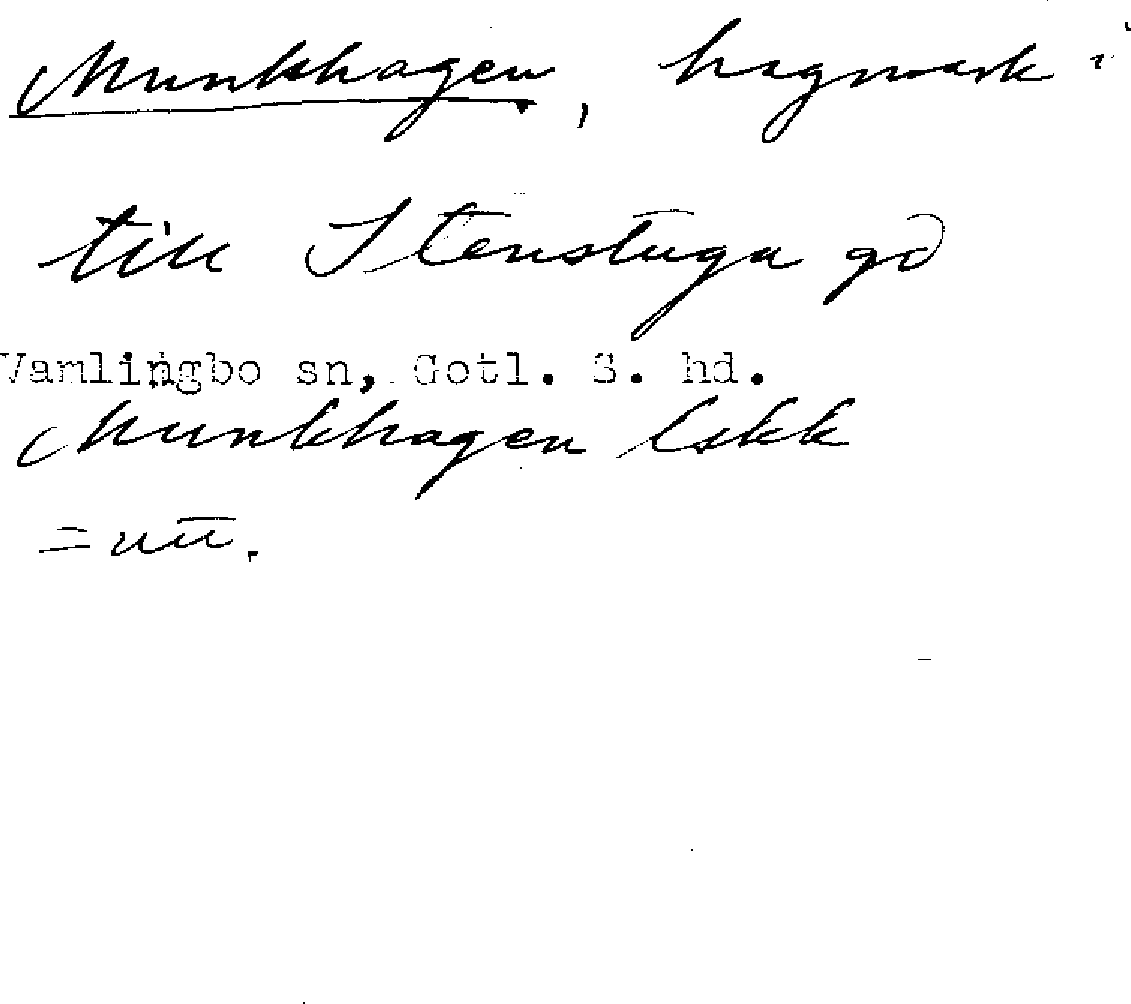 Munkhagen, hagmark i
till Stenstuga gd
Vamlingbo sn, Gotl. S. hd.
Munkhagen lskk
= utt.